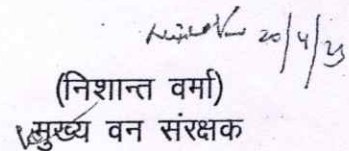 20/4/23
(निशान्त वर्मा)
मुख्य वन संरक्षक